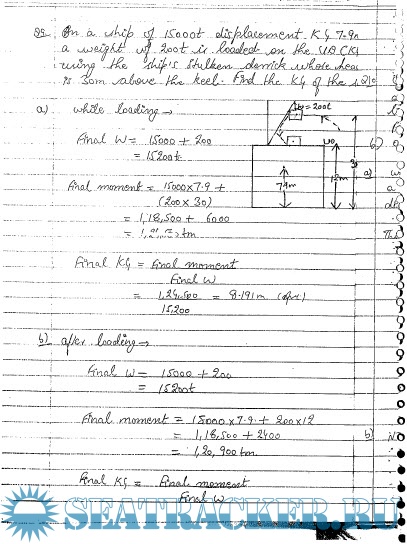 On a ship of 15000t displacement KG 7.9m
a weight of 200t is loaded on the
using the ship's stulken derrick whose head
is 30m above the keel. Find the KG of the
a) while loading →
= 200t
Final W = 15000 + 200
= 15200t
30
7.9m
12m
Final moment = 15000x7.9 +
(200 x 30)
= 1,18,500 + 6000
Final KG = Final moment
Final W
= 1,24,500 = 8.191m
15,200
b) after loading →
Final W = 15000 + 200
= 15200t
Final moment = 15000x7.9 + 200x12
= 1,18,500 + 2400
= 1,20,900tm
Final KG = Final moment
Final W
SEATRACKER.RU